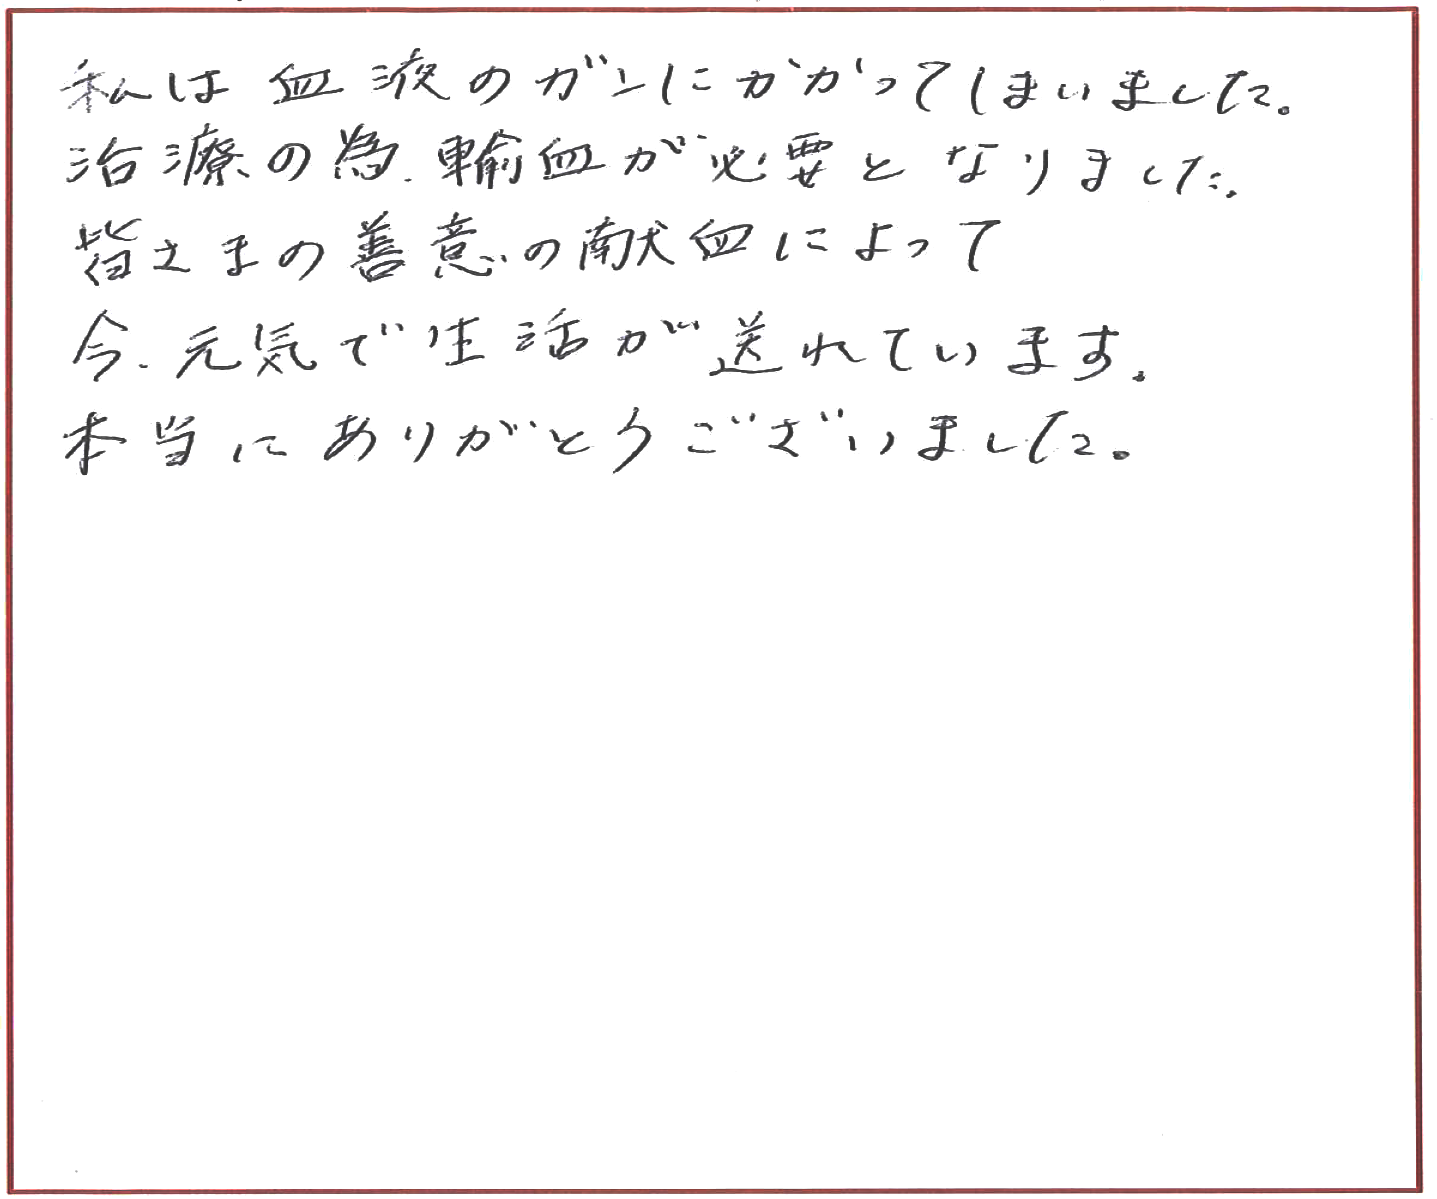 私は血液のガンにかかってしまいました。
治療の為、輸血が必要となりました。
皆さまの善意の献血によって
今、元気で生活が送れています。
本当にありがとうございました。